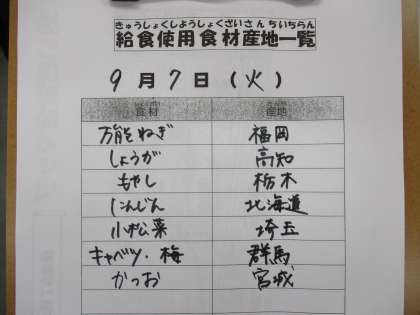 きゅうしょくしようしょくざいさんちいちらん
給食使用食材産地一覧
9月7日(火)
食材 産地
万能ねぎ 福岡
しょうが 高知
もやし 栃木
にんじん 北海道
小松菜 埼玉
キャベツ・梅 群馬
かつお 宮城